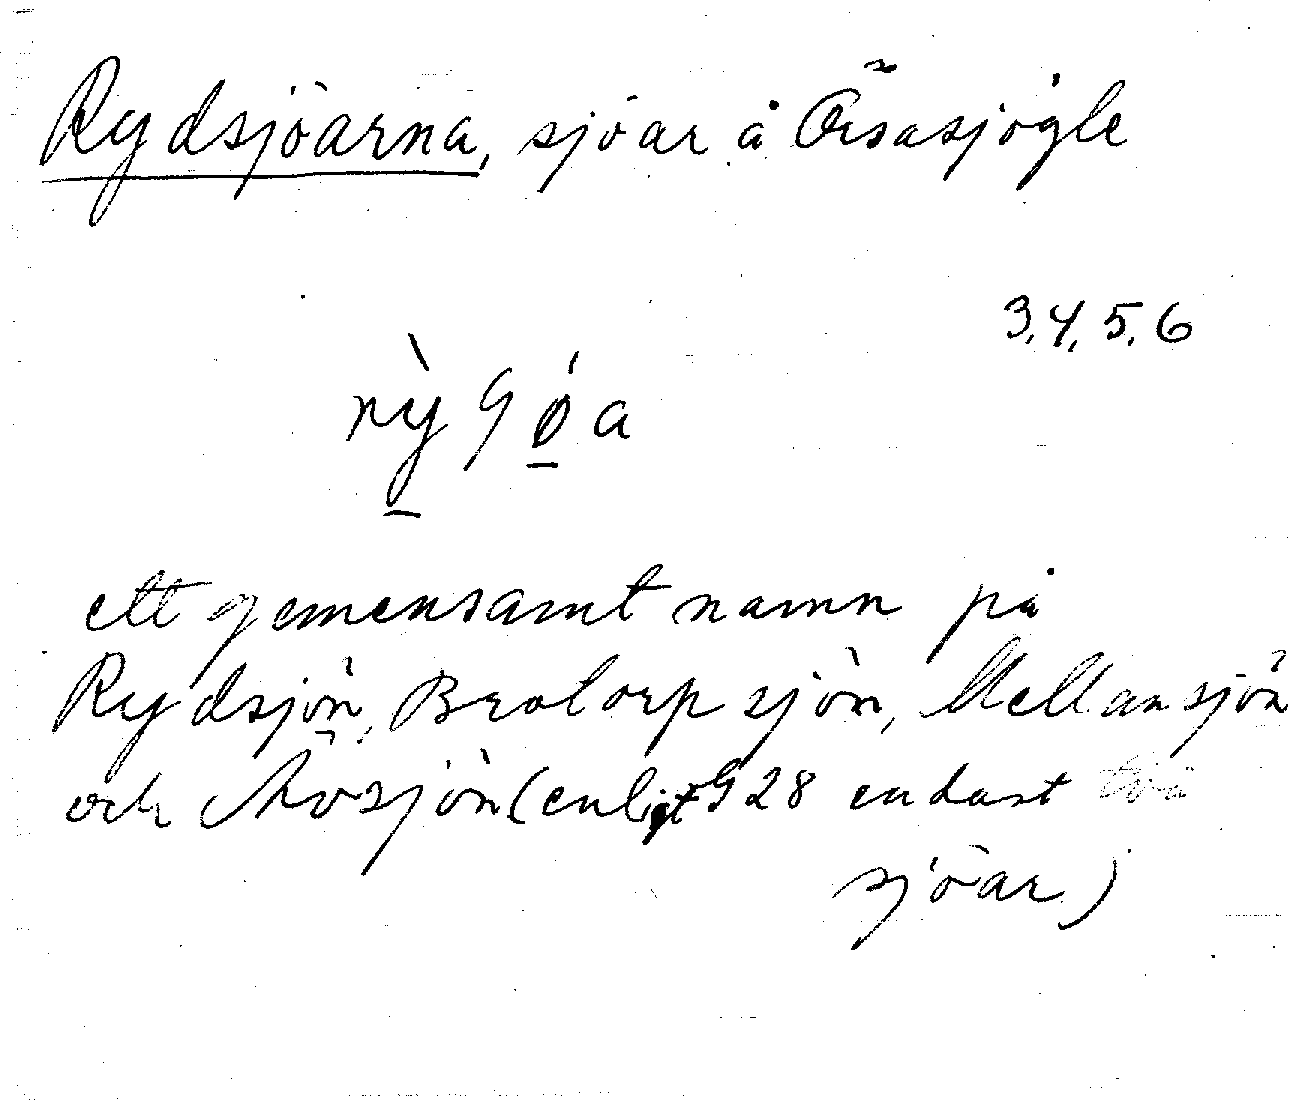 Rydsjöarna, sjöar å Örsasjögle
3,4,5,6
ett gemensamt namn på
Rydsjön, Brotorpsjön, Mellansjön
och Övsjön (enligt G 28 endast två
sjöar)